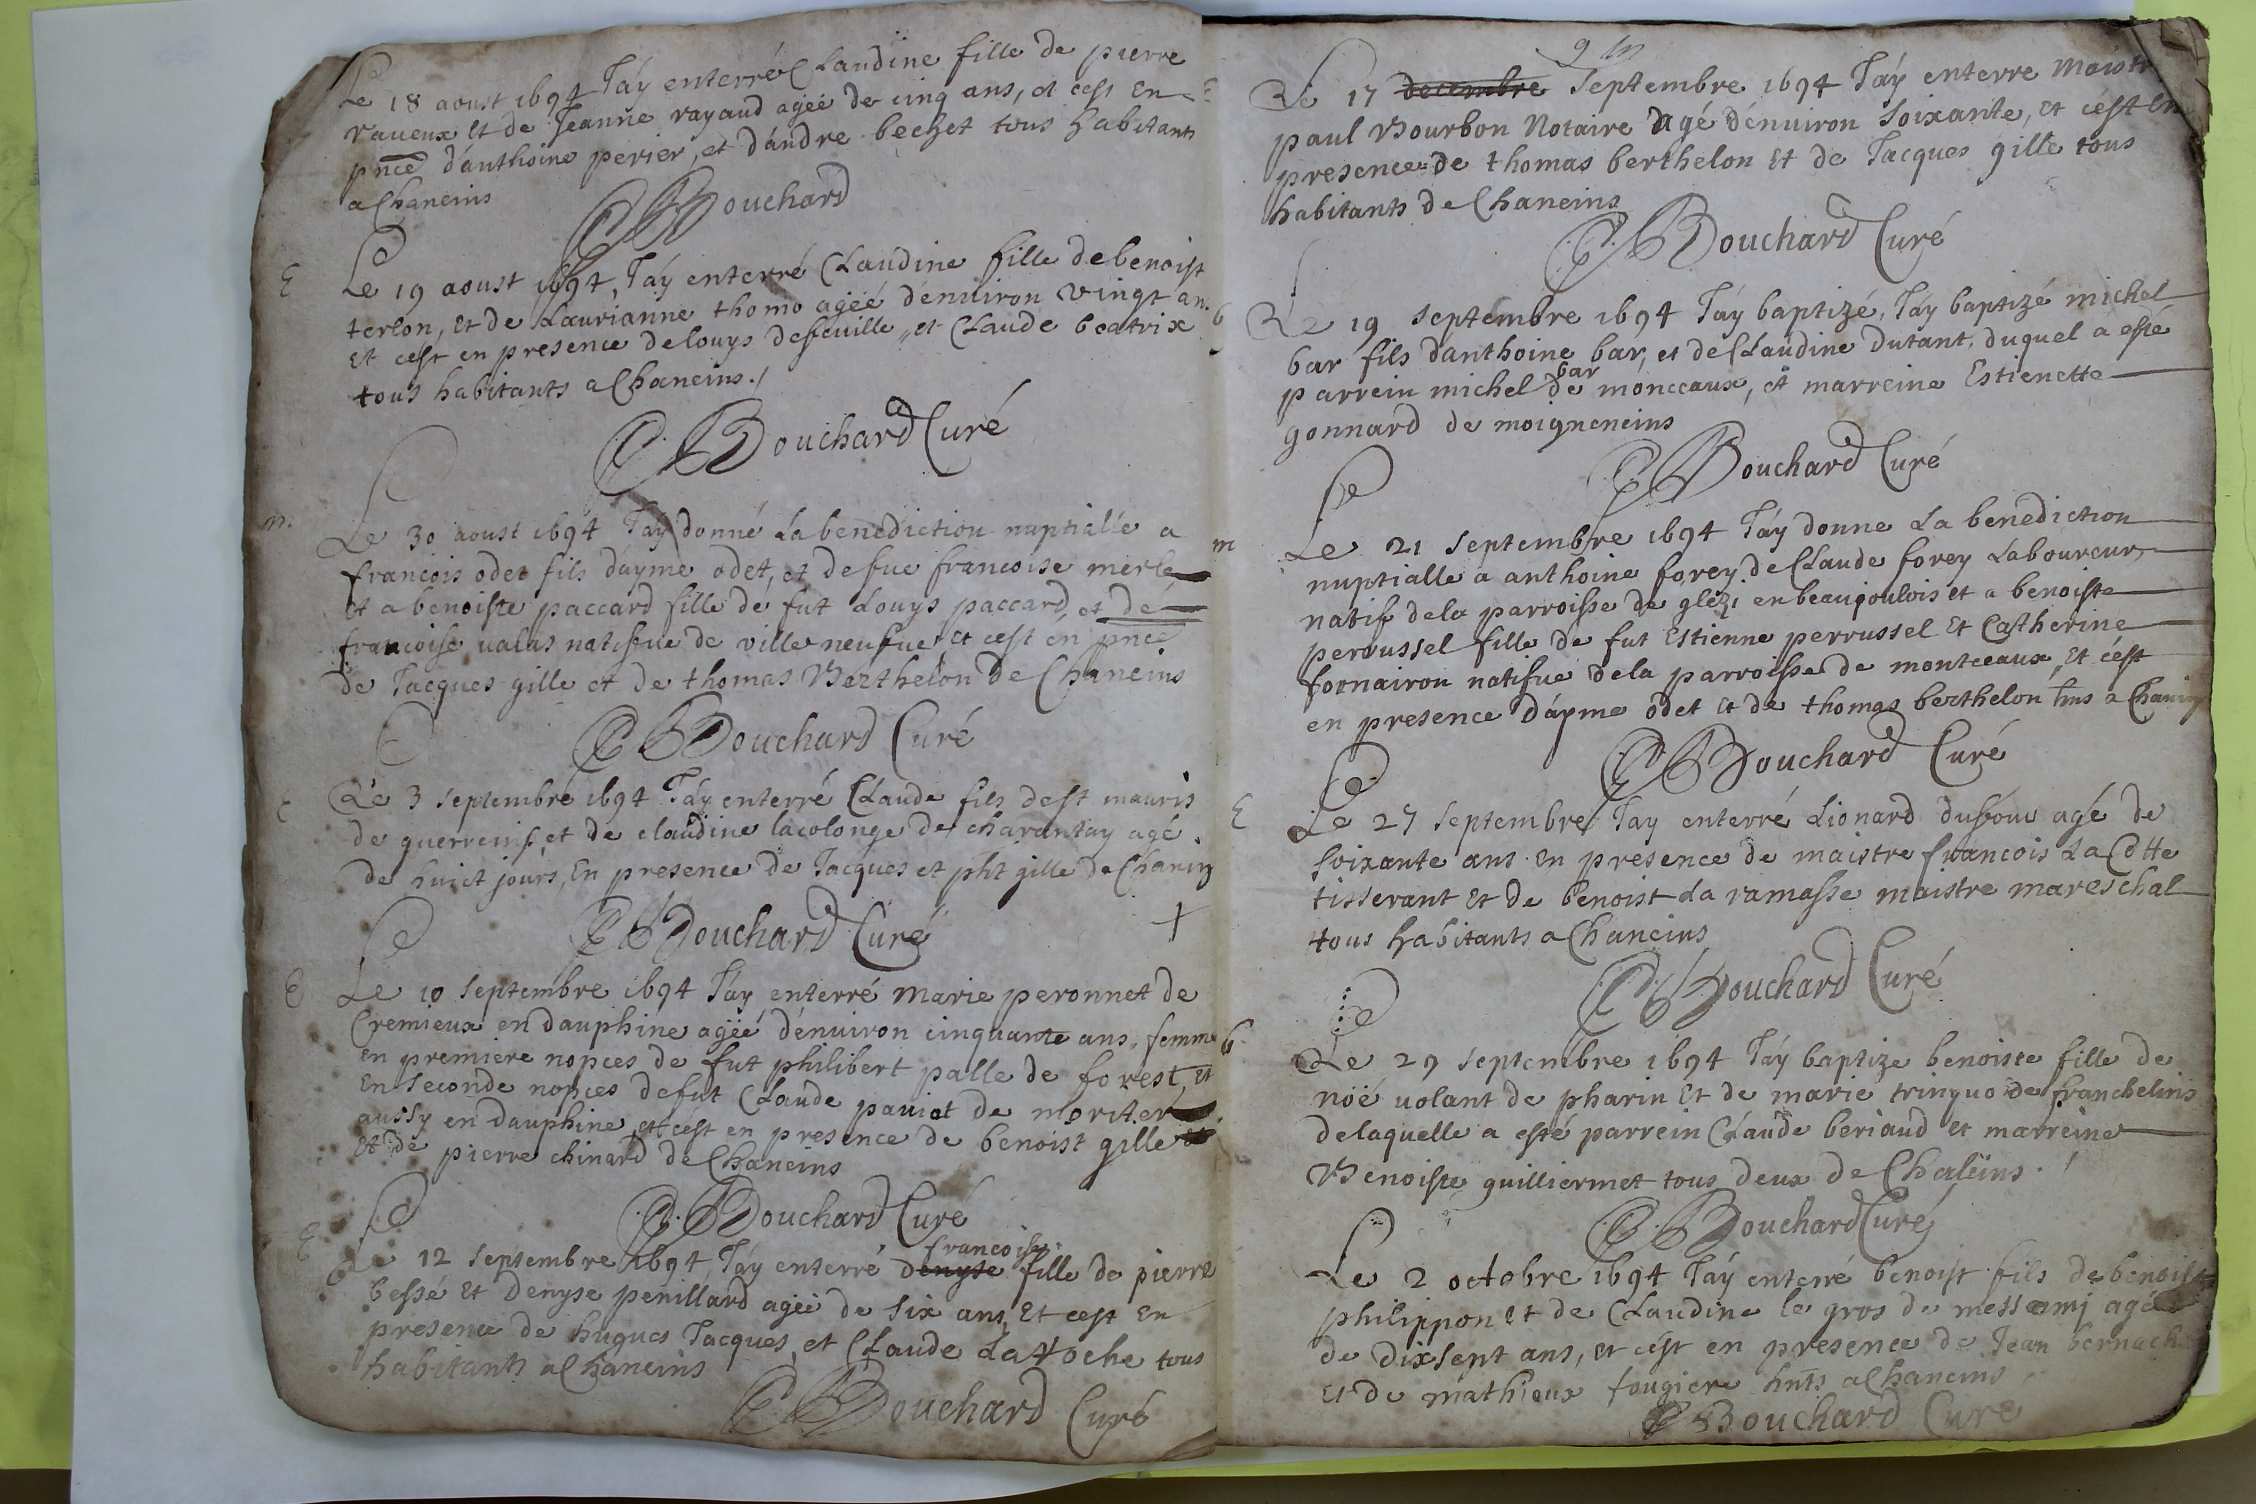 Le 18 aoust 1694 J'áy enterré Claudine fille de pierre
raueux et de Jeanne rayaud agéé de cinq ans, et cest en
pn̄ce d'anthoine perier, et dándre bechet tous habitants
a Chaneins
C Bouchard
E
Le 19 aoust 1694, J'áy enterré Claudine fille de benoist
terlon, et de Laurianne thomo agéé dénuiron vingt an
et cest en presence de louys defeuille, et Claude beatrix
tous habitants a Chaneins./
C Bouchard Curé
m.
Le 30 aoust 1694 J'áy donné La benediction nuptialle a
francois odet fils dáyme odet, et defue francoise merle
et a benoiste paccard fille de fut Louys paccard, et de
francoise ualas natifue de ville neufue, et cest en pnce
de Jacques gille et de thomas Berthelon de Chaneins
C Bouchard Curé
E
Le 3 septembre 1694 J'áy enterré Claude fils de st mauris
de guerreins, et de claudine lacolonge de charantay agé
de huict jours, En presence de Jacques et pht gille de Chanin
C Bouchard Curé
+
E
Le 10 septembre 1694 J'áy enterré Marie peronnet de
Cremieux en dauphiné agéé dénuiron cinquante ans, femme
en premiere nopces de fut philibert palle de forest, et
en seconde nopces defut Claude pauiot de moriter
aussy en dauphine, et cést en presence de benoist gille
et de pierre chinard de Chaneins
C. Bouchard Curé
E
Le 12 septembre 1694 J'áy enterré denyse francoise fille de pierre
bessé et denyse penillard agéé de six ans, Et cest en
presence de hugues Jacques, et Claude La roche tous
habitants a Chaneins
C Bouchard Curé
Le 17 decembre Septembre 1694 J'áy enterre Maistr
paul Bourbon Notaire agé dénuiron Soixante, et cést En
presence de thomas berthelon et de Jacques gille tous
habitants de Chaneins
C. Bouchard Curé
b
Le 19 septembre 1694 J'áy baptizé, J'áy baptizé michel
bar fils danthoine bar, et de Claudine Dutant, duquel a esté
parrein michel bar de monceaux, et marreine Estienette
gonnard de moigneneins
C Bouchard Curé
m
Le 21 septembre 1694 J'áy donne La benediction
nuptialle a anthoine forey de Claude forey Laboureur
natif dela parroisse de glezi en beaugoulois et a benoiste
perrussel fille de fut Estienne perrussel et Catherine
fornairon natifue dela parroisse de montceaux, Et cést
en presence d'áyme odet et de thomas berthelon tous a Chanins
C Bouchard Curé
E
Le 27 septembre J'ay enterré Lionard dufour agé de
soixante ans en presence de maistre francois La Cotte
tisserant et de benoist La ramasse maistre mareschal
tous habitants a Chaneins
C Bouchard Curé
b
Le 29 septembre 1694 J'áy baptize benoiste fille de
nöé uolant de pharin et de marie trinquo de franchelins
delaquelle a esté parrein Claude beriaud et marreine
Benoiste guilliermet tous deux de Chaleins.
C. Bouchard Curé
Le 2 octobre 1694 J'áy enterré benoist fils de benoist
philippon et de Claudine le gros de messemj agé
de dixsept ans, et cést en presence de Jean bernach
et de mathieux fougiere hnts a Chaneins
C Bouchard Curé